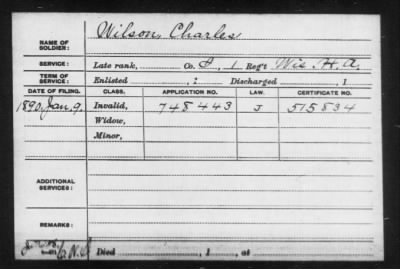 NAME OF SOLDIER: Wilson, Charles
SERVICE: Late rank, Co. , 1 Reg't Wis. H. A.
TERM OF SERVICE: Enlisted : Discharged , 1
DATE OF FILING. CLASS. APPLICATION NO. LAW. CERTIFICATE NO.
1890, Jan. 9. Invalid, 748443 J 515834
Widow,
Minor,
ADDITIONAL SERVICES:
REMARKS:
Died , 1 , at